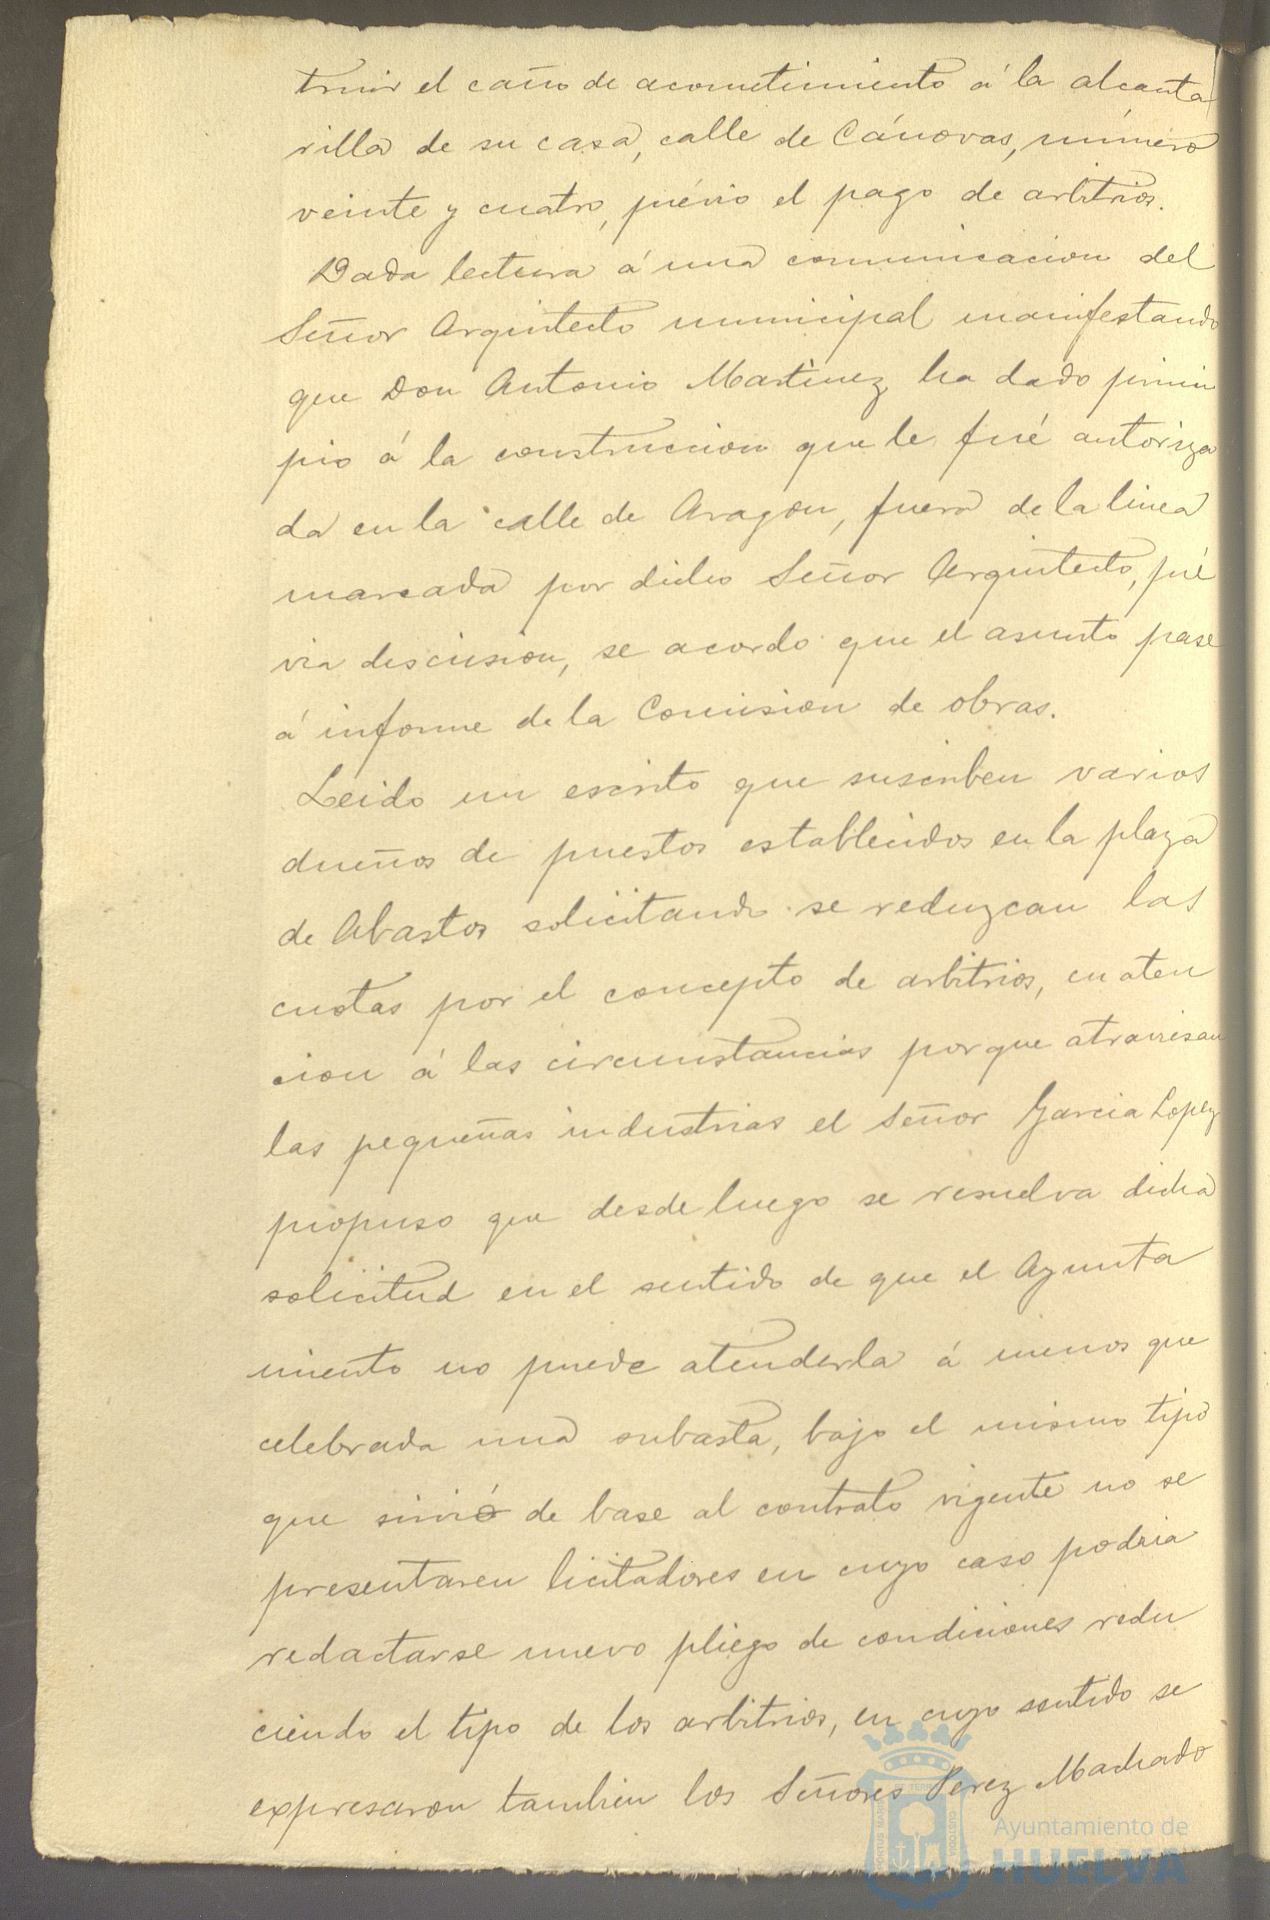 truir el caño de acometimiento á la alcanta
rilla de su casa, calle de Cánovas, número
veinte y cuatro, prévio el pago de arbitrios.
Dada lectura á una comunicacion del
Señor Arquitecto municipal manifestando
que Don Antonio Martinez ha dado princi
pio á la construccion que le fué autoriza
da en la calle de Aragon, fuera de la linea
marcada por dicho Señor Arquitecto, pré
via discusion, se acordo que el asunto pase
á informe de la Comision de obras.
Leido un escrito que suscriben varios
dueños de puestos establecidos en la plaza
de Abastos solicitando se reduzcan las
cuotas por el concepto de arbitrios, en aten
cion á las circunstancias porque atraviesan
las pequeñas industrias el Señor Garcia Lopez
propuso que desde luego se resuelva dicha
solicitud en el sentido de que el Ayunta
miento no puede atenderla á menos que
celebrada una subasta, bajo el mismo tipo
que sirvió de base al contrato vigente no se
presentaren licitadores en cuyo caso podria
redactarse nuevo pliego de condiciones redu
ciendo el tipo de los arbitrios, en cuyo sentido se
expresaron tambien los Señores Perez Machado
Ayuntamiento de
HUELVA